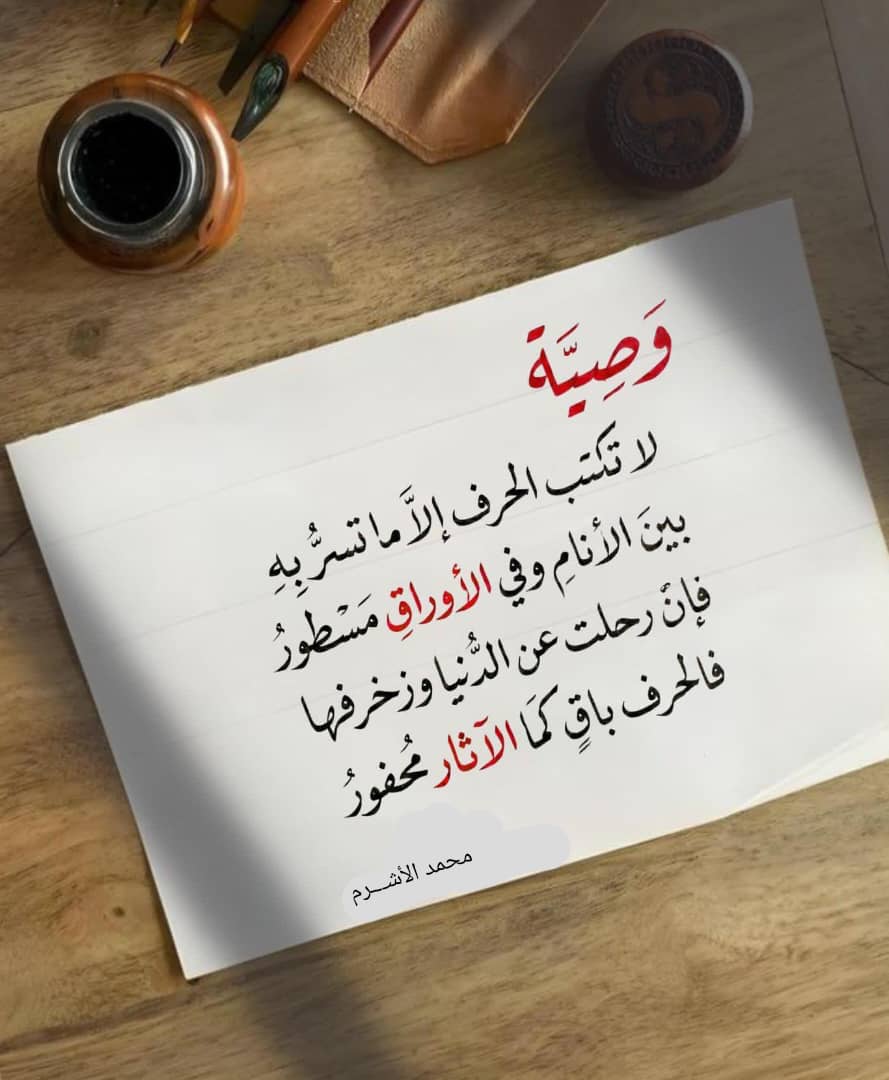 وَصِيَّة
لا تكتب الحرف إلاَّ ما تسرُّ بِهِ
بينَ الأنامِ وفي الأوراقِ مَسْطورُ
فإنْ رحلت عن الدُّنيا وزخرفها
فالحرف باقٍ كمَا الآثار مُحفورُ
محمد الأشــرم